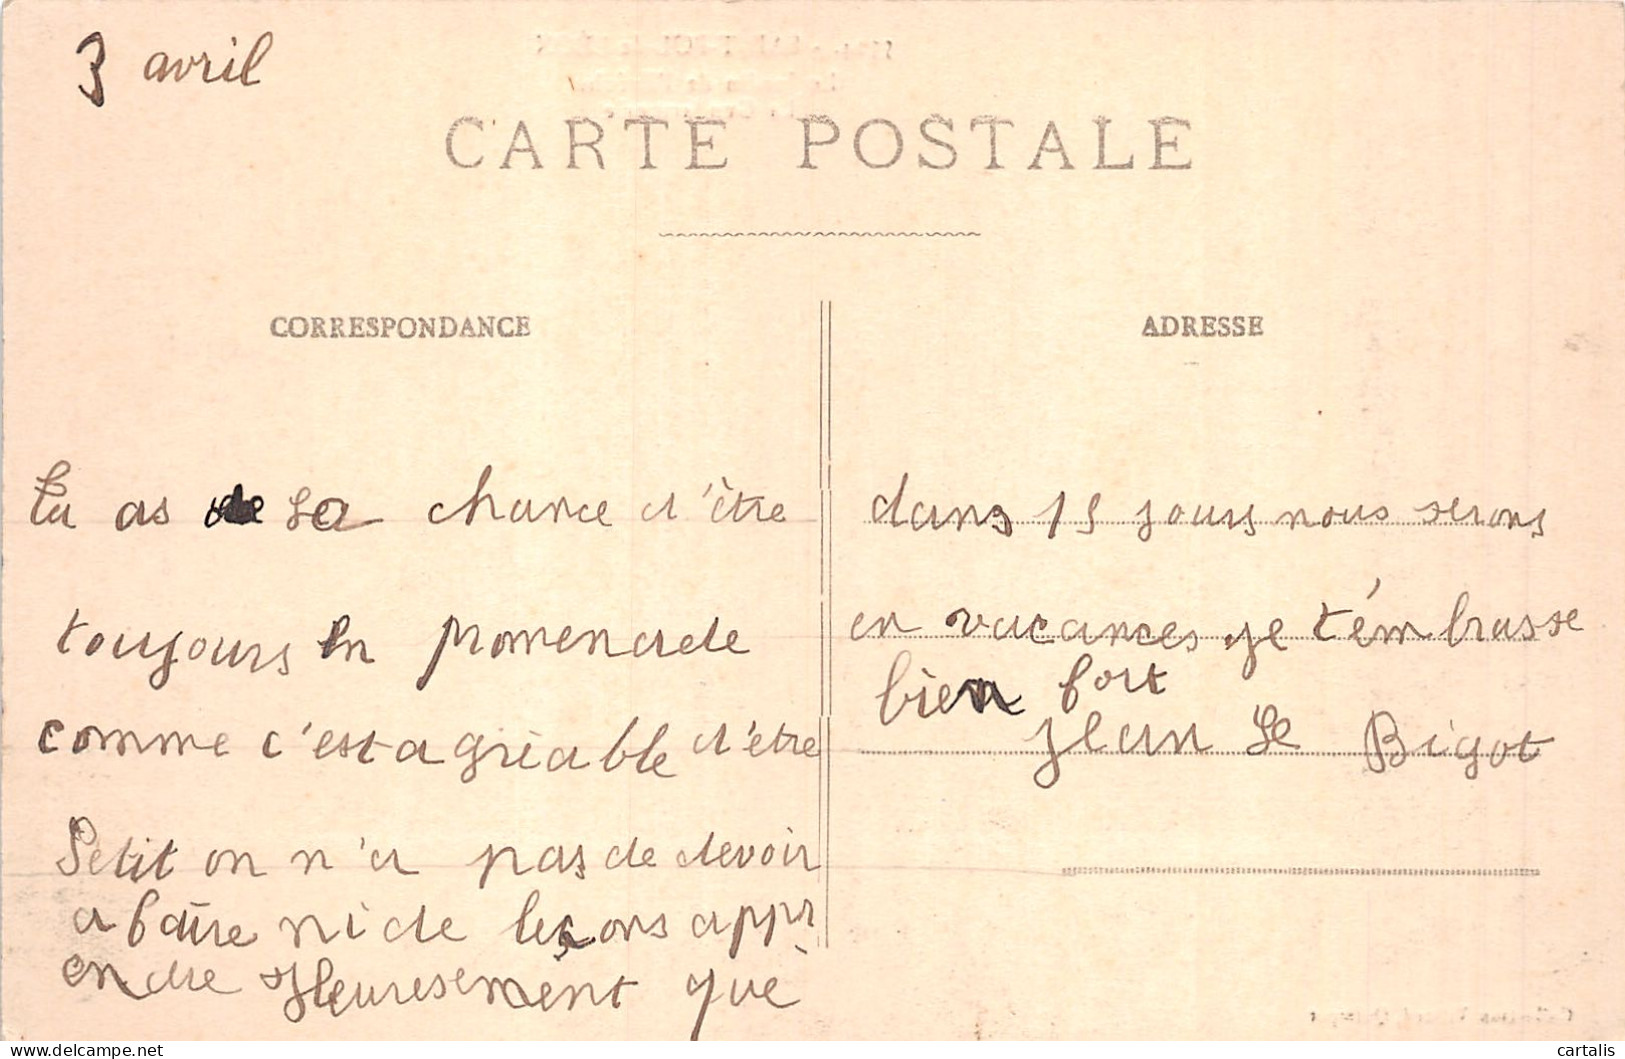 3 avril
CARTE POSTALE
CORRESPONDANCE
ADRESSE
tu as de la chance d'être
toujours en promenade
comme c'est agréable d'être
Petit on n'a pas de devoir
a faire ni de leçons appr
endre Heuresement què
dans 15 jours nous serons
en vacances je t'émbrasse
bien fort
Jean Le Bigot
cartalis